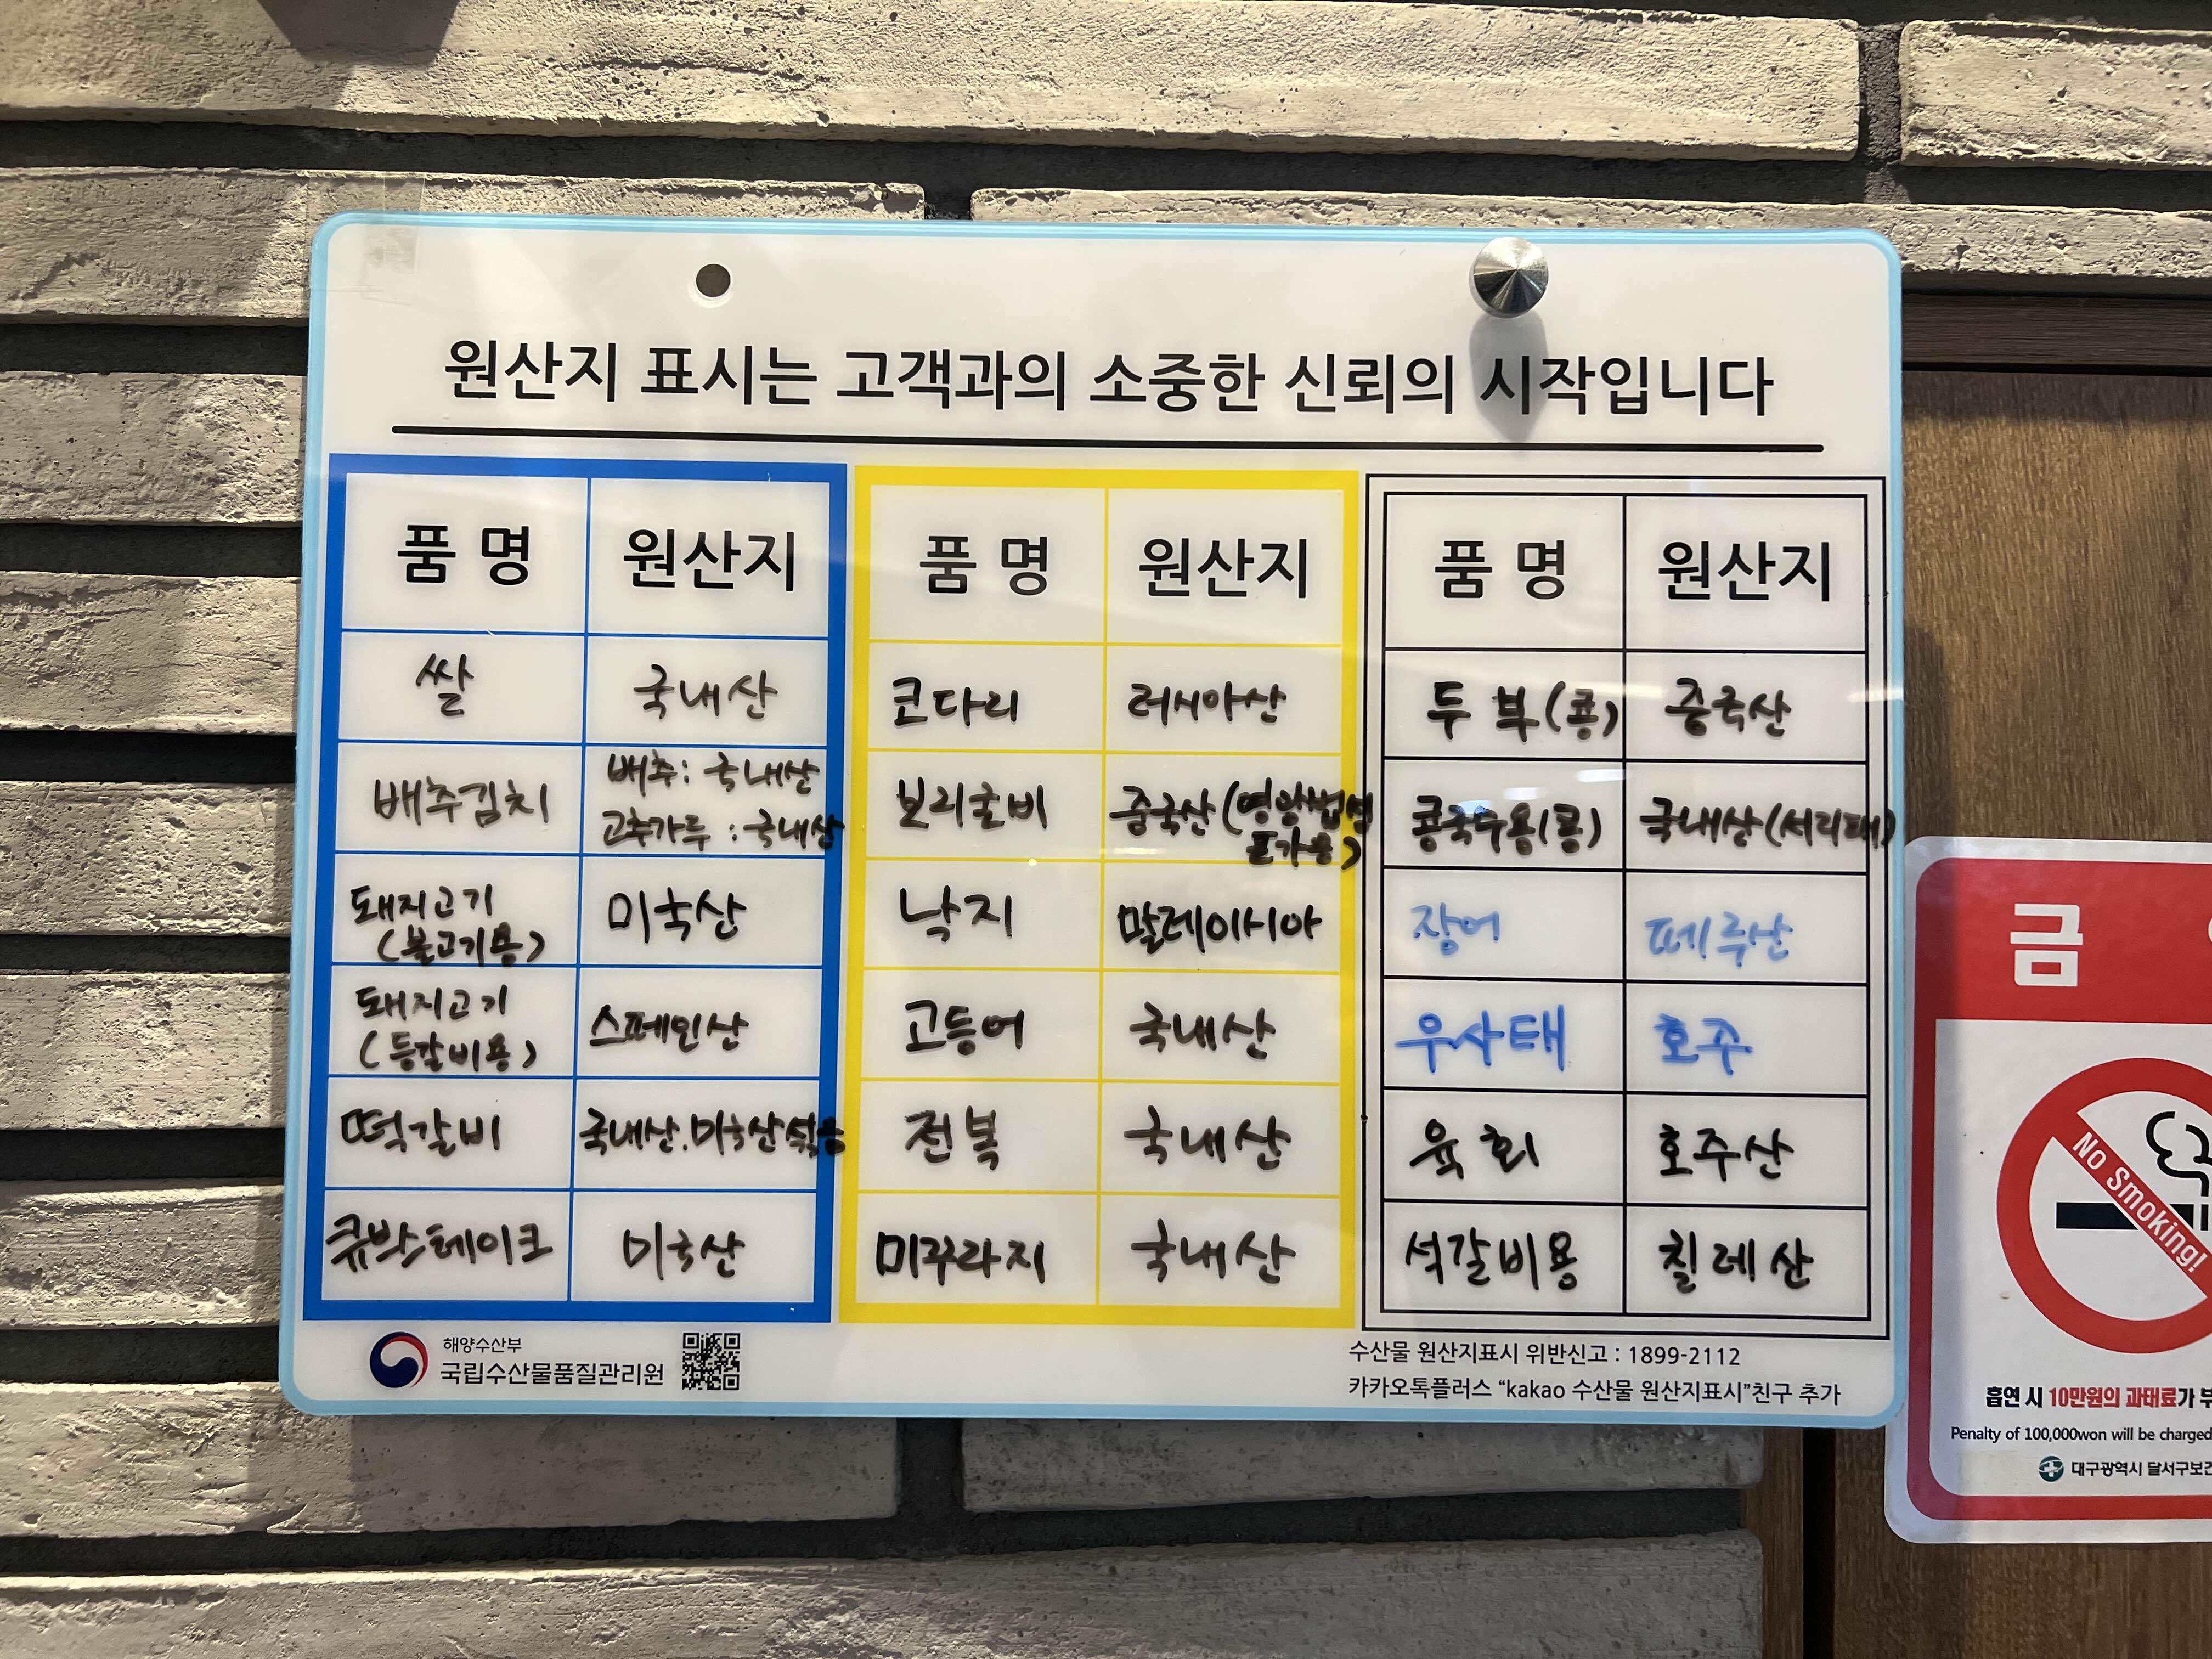 원산지 표시는 고객과의 소중한 신뢰의 시작입니다
품 명 원산지
쌀 국내산
배추김치 배추: 국내산
고추가루 : 국내산
돼지고기
(불고기용) 미국산
돼지고기
(등갈비용) 스페인산
떡갈비 국내산.미국산섞음
큐브스테이크 미국산
품 명 원산지
코다리 러시아산
보리굴비 중국산(영광법성
포가공)
낙지 말레이시아
고등어 국내산
전복 국내산
미꾸라지 국내산
품 명 원산지
두 부(콩) 중국산
콩국수용(콩) 국내산(서리태)
장어 페루산
우사태 호주
육 회 호주산
석갈비용 칠레산
해양수산부
국립수산물품질관리원
수산물 원산지표시 위반신고 : 1899-2112
카카오톡플러스 “kakao 수산물 원산지표시”친구 추가
금
No Smoking!
흡연 시 10만원의 과태료가
Penalty of 100,000won will be charged
대구광역시 달서구보건